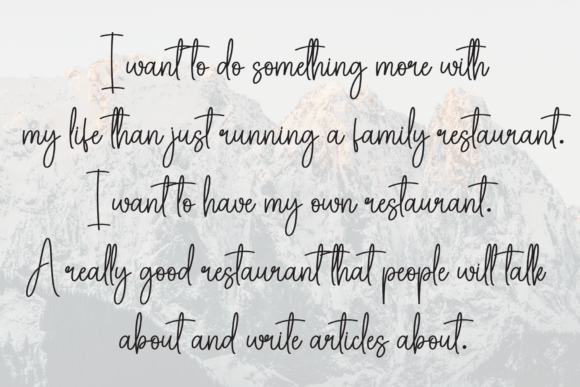 I want to do something more with
my life than just running a family restaurant.
I want to have my own restaurant.
A really good restaurant that people will talk
about and write articles about.